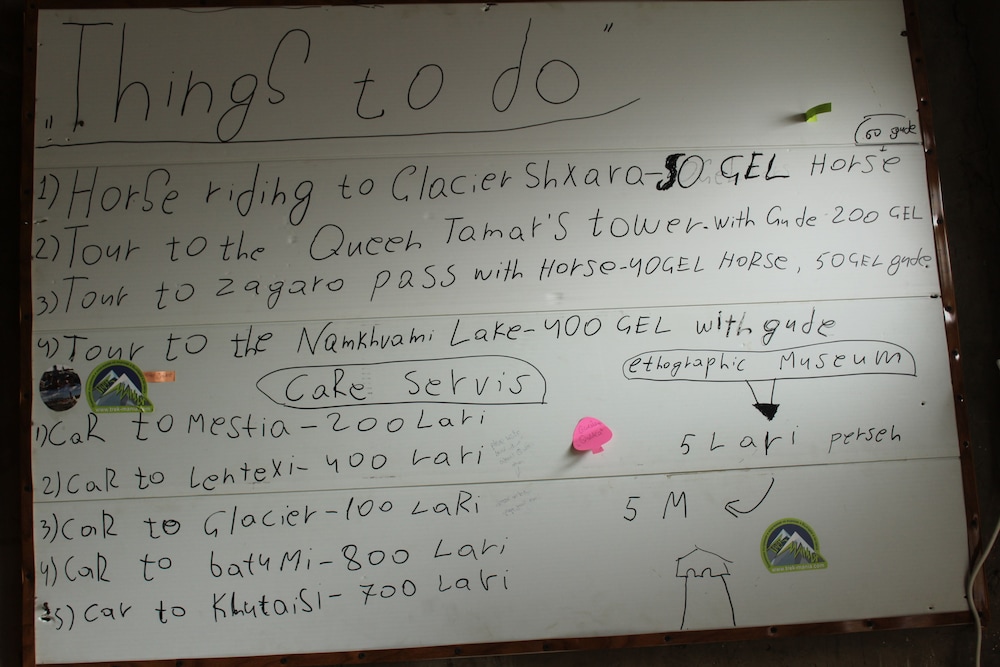 "Things to do"
50 gude
1) Horse riding to Glacier Shxara-50 GEL Horse
2) Tour to the Queen Tamar's tower. with Gude 200 GEL
3) Tour to Zagaro pass with Horse-40GEL Horse, 50GEL gude.
4) Tour to the Namkhvami Lake-400 GEL with gude
Care Servis
ethographic Museum
1) Car to Mestia-200 Lari
5 Lari perseh
2) Car to Lentexi-400 Lari
3) Car to Glacier-100 Lari
5 M
4) Car to batumi-800 Lari
5) Car to Khutaisi-700 Lari